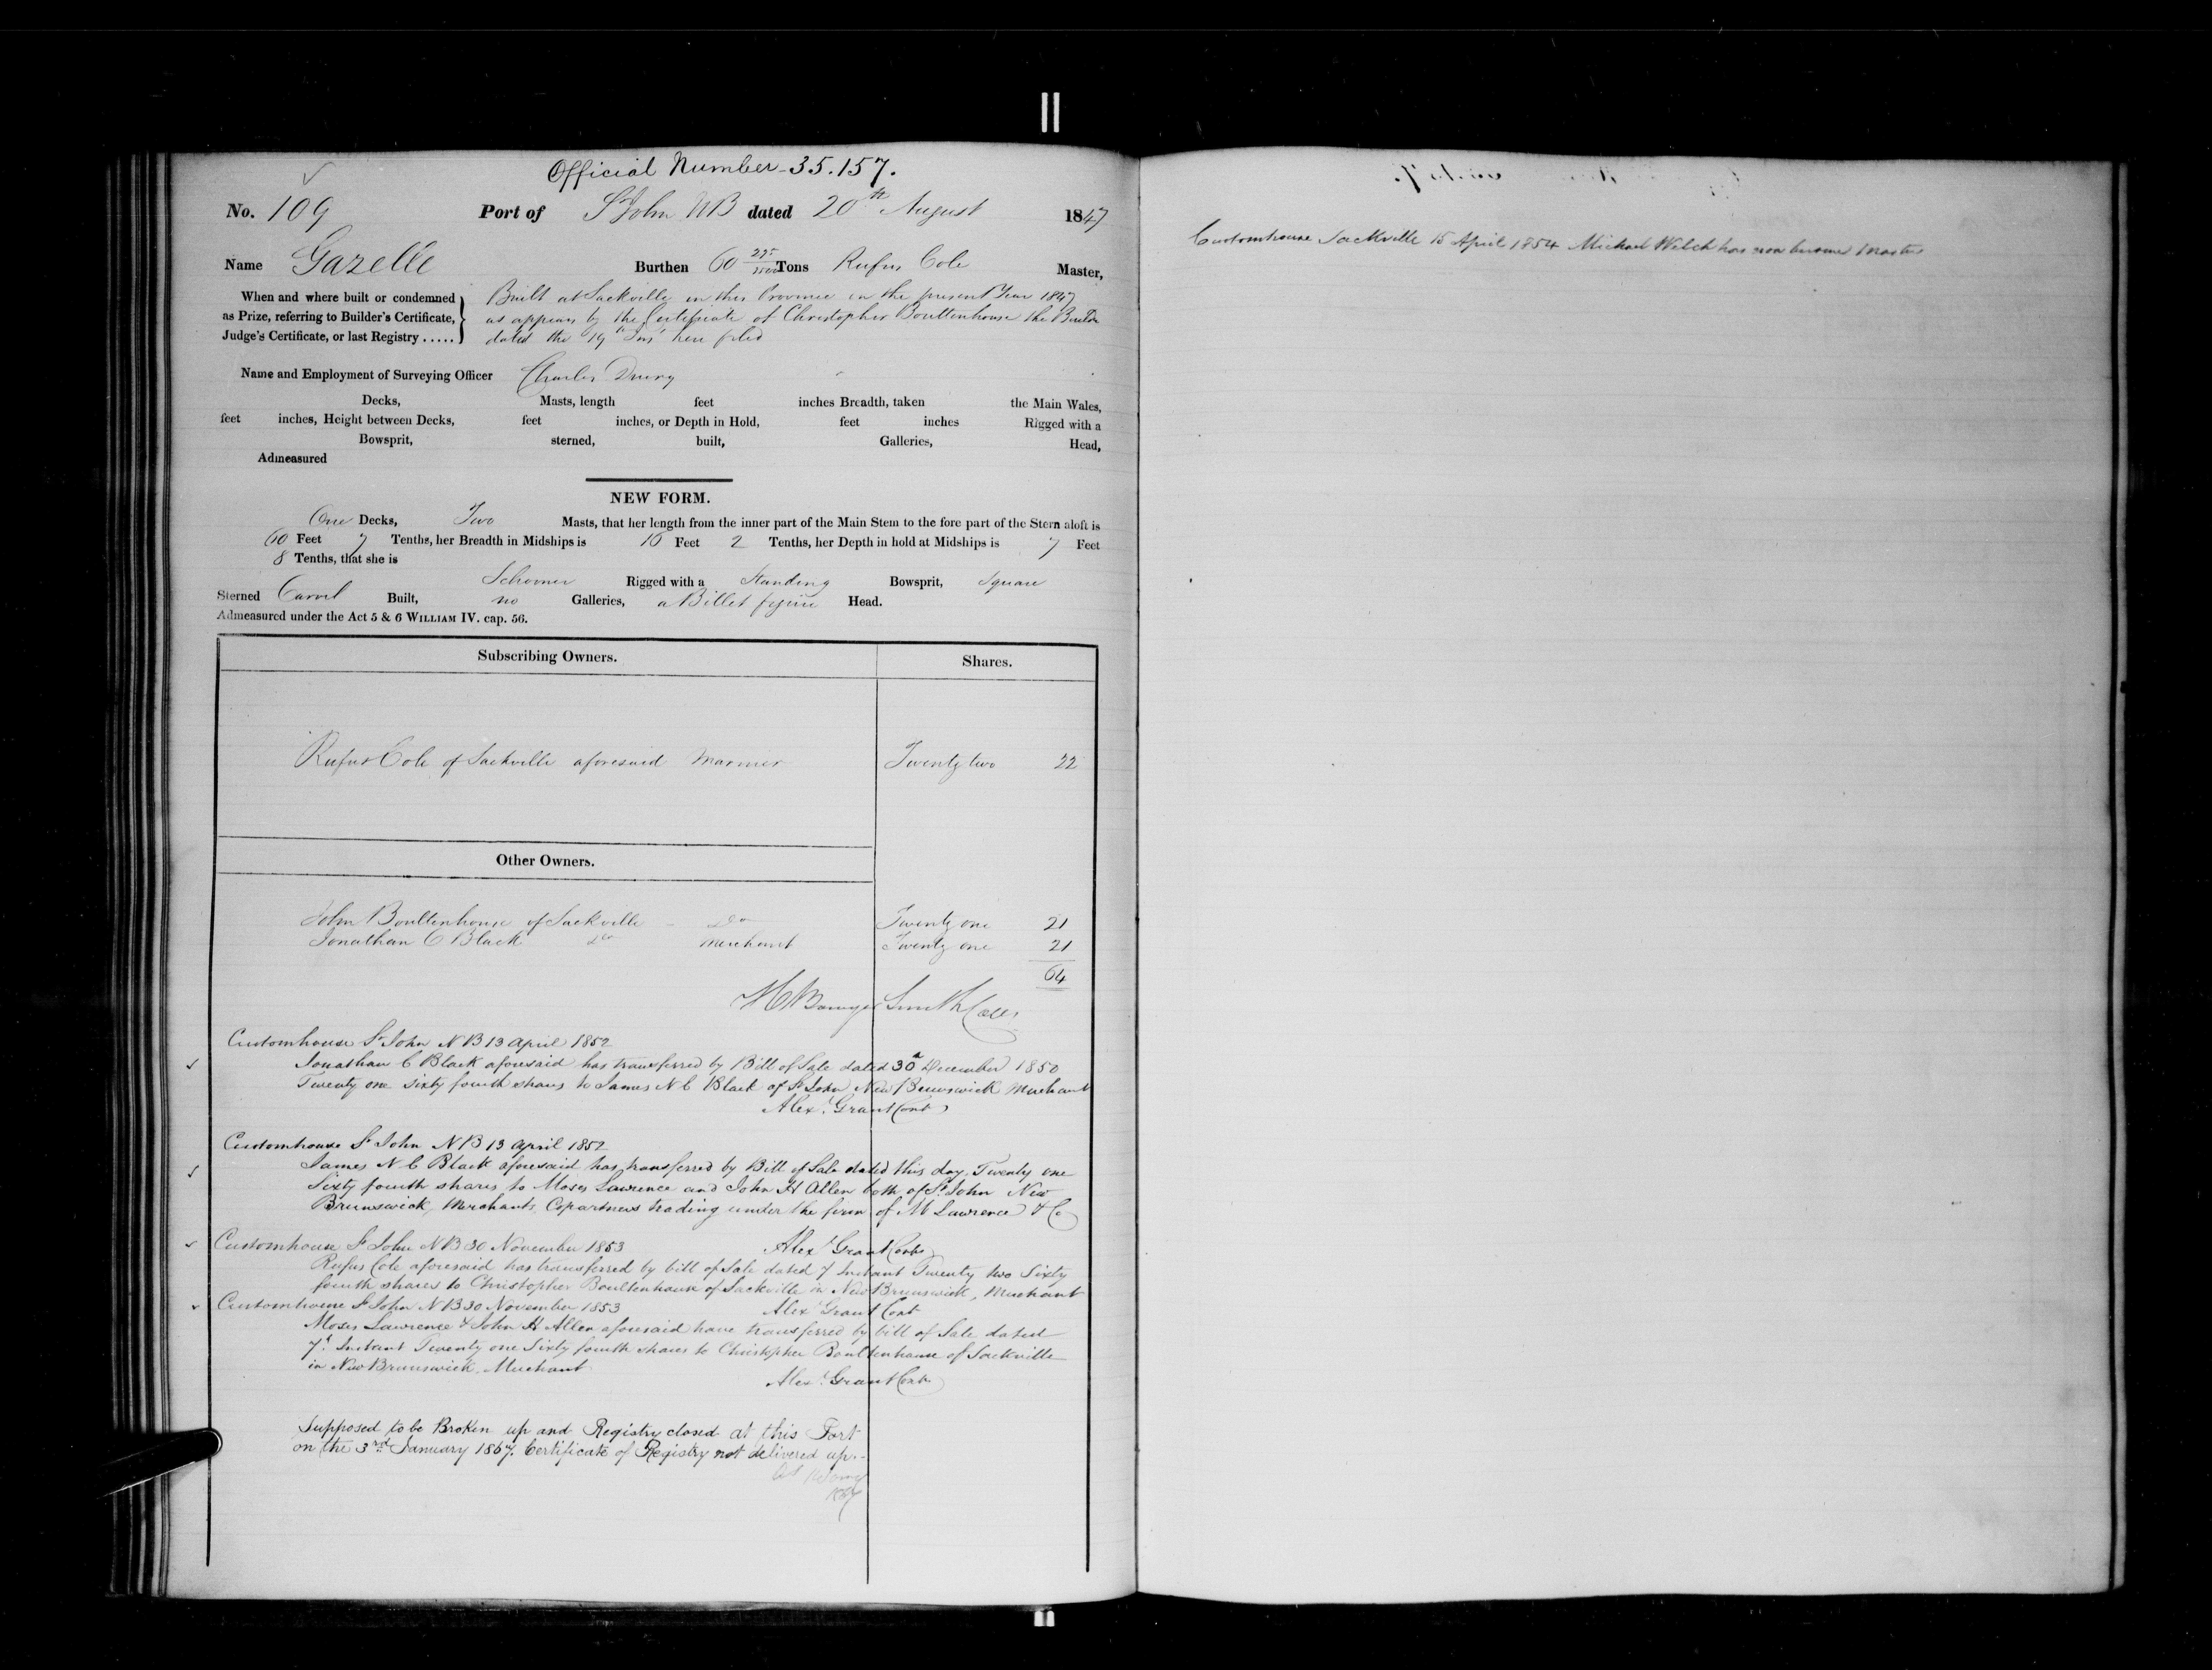 Official Number - 35.157.
No. 109 Port of St John NB dated 20th August 1847
Name Gazelle Burthen 60 Tons Rufus Cole Master,
When and where built or condemned
as Prize, referring to Builder's Certificate,
Judge's Certificate, or last Registry .....
Built at Sackville in this Province in the present Year 1847
as appears by the Certificate of Christopher Boultenhouse the Builder
dated the 19th Inst here filed
Name and Employment of Surveying Officer Charles Drury
Decks, Masts, length feet inches Breadth, taken the Main Wales,
feet inches, Height between Decks, feet inches, or Depth in Hold, feet inches Rigged with a
Bowsprit, sterned, built, Galleries, Head,
Admeasured
NEW FORM.
One Decks, Two Masts, that her length from the inner part of the Main Stem to the fore part of the Stern aloft is
60 Feet 7 Tenths, her Breadth in Midships is 16 Feet 2 Tenths, her Depth in hold at Midships is 7 Feet
8 Tenths, that she is
Schooner Rigged with a Standing Bowsprit, Square
Sterned Carvel Built, no Galleries, a Billet figure Head.
Admeasured under the Act 5 & 6 WILLIAM IV. cap. 56.
Subscribing Owners. Shares.
Rufus Cole of Sackville aforesaid Mariner Twenty two 22
Other Owners.
John Boultenhouse of Sackville Do Twenty one 21
Jonathan C Black Do Merchant Twenty one 21
64
H Bowyer Smith Coll.
Customhouse St John N B 13 April 1852
Jonathan C Black aforesaid has transferred by Bill of Sale dated 30th December 1850
Twenty one sixty fourth shares to James N C Black of St John New Brunswick Merchant
Alexr Grant Cont
Customhouse St John N B 13 April 1852
James N C Black aforesaid has transferred by Bill of Sale dated this day, Twenty one
Sixty fourth shares to Moses Lawrence and John H Allen both of St John New
Brunswick, Merchants, Copartners trading under the firm of M Lawrence & Co
Alexr Grant Cont
Customhouse St John N B 30 November 1853
Rufus Cole aforesaid has transferred by bill of Sale dated 7 Instant Twenty two Sixty
fourth shares to Christopher Boultenhouse of Sackville in New Brunswick, Merchant
Alexr Grant Cont
Customhouse St John N B 30 November 1853
Moses Lawrence & John H Allen aforesaid have transferred by bill of Sale dated
7th Instant Twenty one Sixty fourth shares to Christopher Boultenhouse of Sackville
in New Brunswick, Merchant
Alexr Grant Cont
Supposed to be Broken up and Registry closed at this Port
on the 3rd January 1867. Certificate of Registry not delivered up.
Customhouse Sackville 15 April 1854 Michael Welch has now become Master